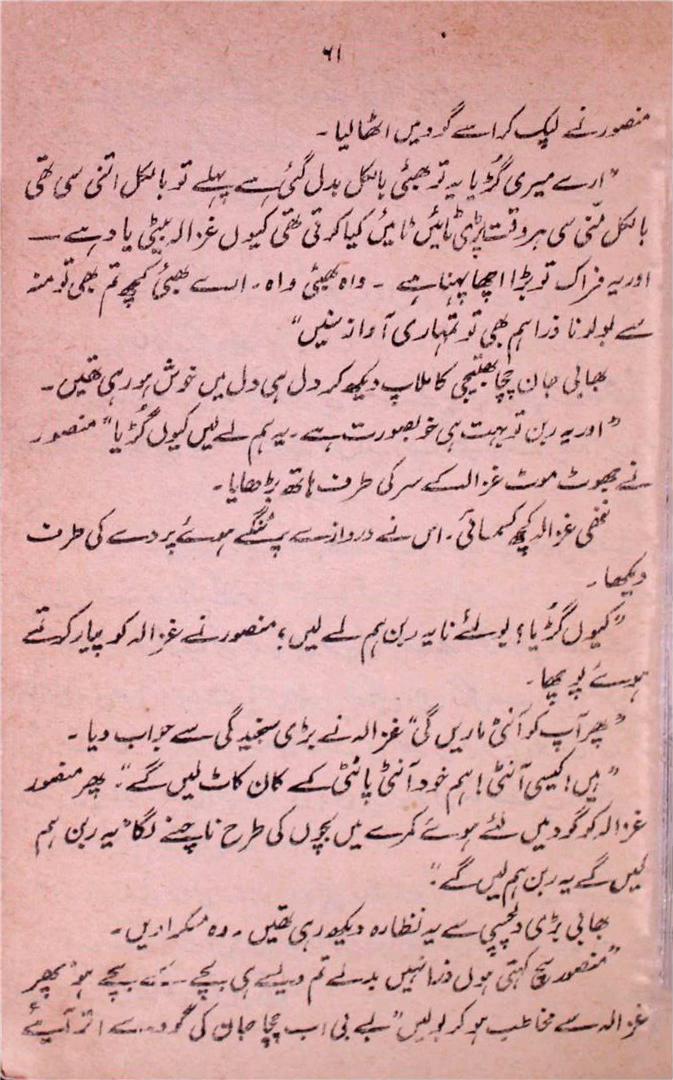 ۶۱
منصور نے لپک کر اسے گود میں اٹھا لیا ۔
"ارے میری گڑیا یہ تو بھئی بالکل بدل گئی ہے پہلے تو بالکل اتنی سی تھی
بالکل منّی سی ہر وقت پڑی ٹائیں ٹائیں کیا کرتی تھی کیوں غزالہ بیٹی یاد ہے ــــ
اور یہ فراک تو بڑا اچھا پہنا ہے ۔ واہ بھئی واہ ۔ اسے بھئی کچھ تم بھی تو منہ
سے بولو نا ذرا ہم بھی تو تمہاری آواز سنیں"
بھابی جان چچا بھتیجی کا ملاپ دیکھ کر دل ہی دل میں خوش ہو رہی تھیں ۔
"اور یہ ربن تو بہت ہی خوبصورت ہے ۔ یہ ہم لے لیں کیوں گڑیا" منصور
نے جھوٹ موٹ غزالہ کے سر کی طرف ہاتھ بڑھایا ۔
ننھی غزالہ کچھ کسمسائی ۔ اس نے دروازے پر ٹنگے ہوئے پردے کی طرف
دیکھا ۔
"کیوں گڑیا؟ بولئے نا یہ ربن ہم لے لیں؟ منصور نے غزالہ کو پیار کرتے
ہوئے پوچھا ۔
"پھر آپ کو آنٹی ماریں گی" غزالہ نے بڑی سنجیدگی سے جواب دیا ۔
"ہیں! کیسی آنٹی! ہم خود آنٹی پانٹی کے کان کاٹ لیں گے"۔ پھر منصور
غزالہ کو گود میں لئے ہوئے کمرے میں بچوں کی طرح ناچنے لگا "یہ ربن ہم
لیں گے یہ ربن ہم لیں گے"۔
بھابی بڑی دلچسپی سے یہ نظارہ دیکھ رہی تھیں ۔ وہ مسکرا دیں ۔
"منصور سچ کہتی ہوں ذرا نہیں بدلے تم ویسے ہی بچے کے بچے ہو" پھر
غزالہ سے مخاطب ہو کر بولیں "بے بی اب چچا جان کی گود سے اتر آیئے